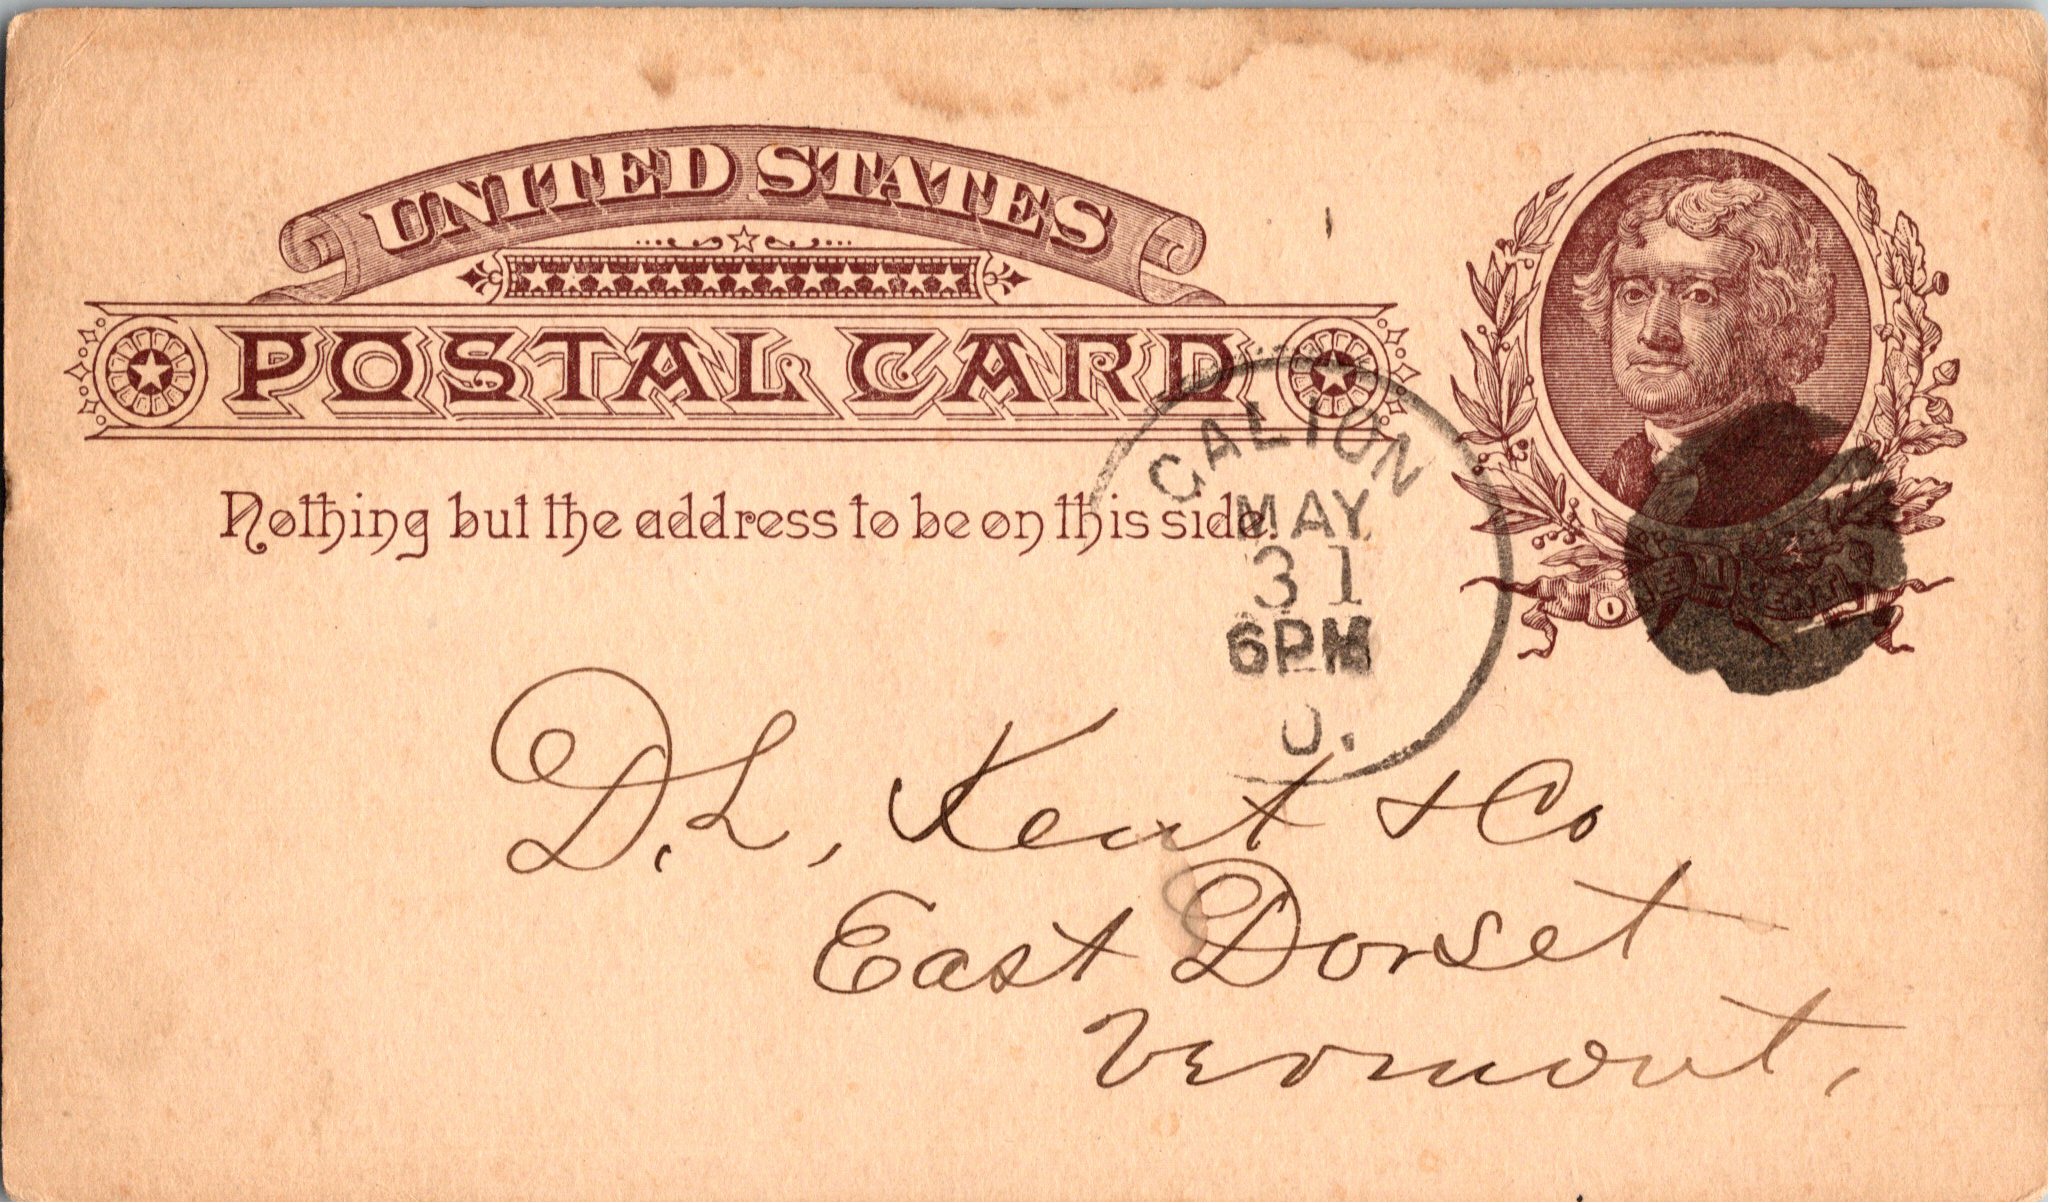 UNITED STATES
POSTAL CARD
Nothing but the address to be on this side.
GALION
MAY
31
6PM
O.
D. L. Kent & Co
East Dorset
Vermont,